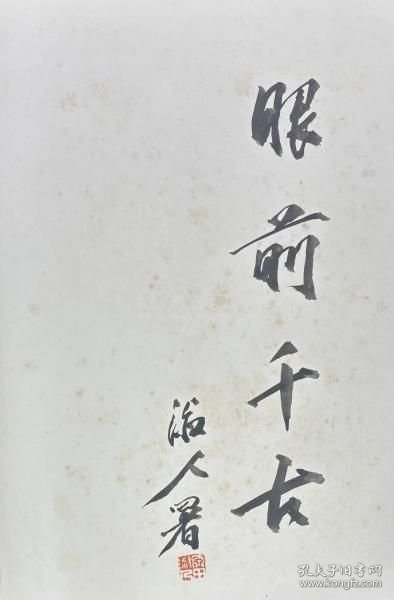 眼前千古
海人署
孔夫子旧书网
www.kongfz.com